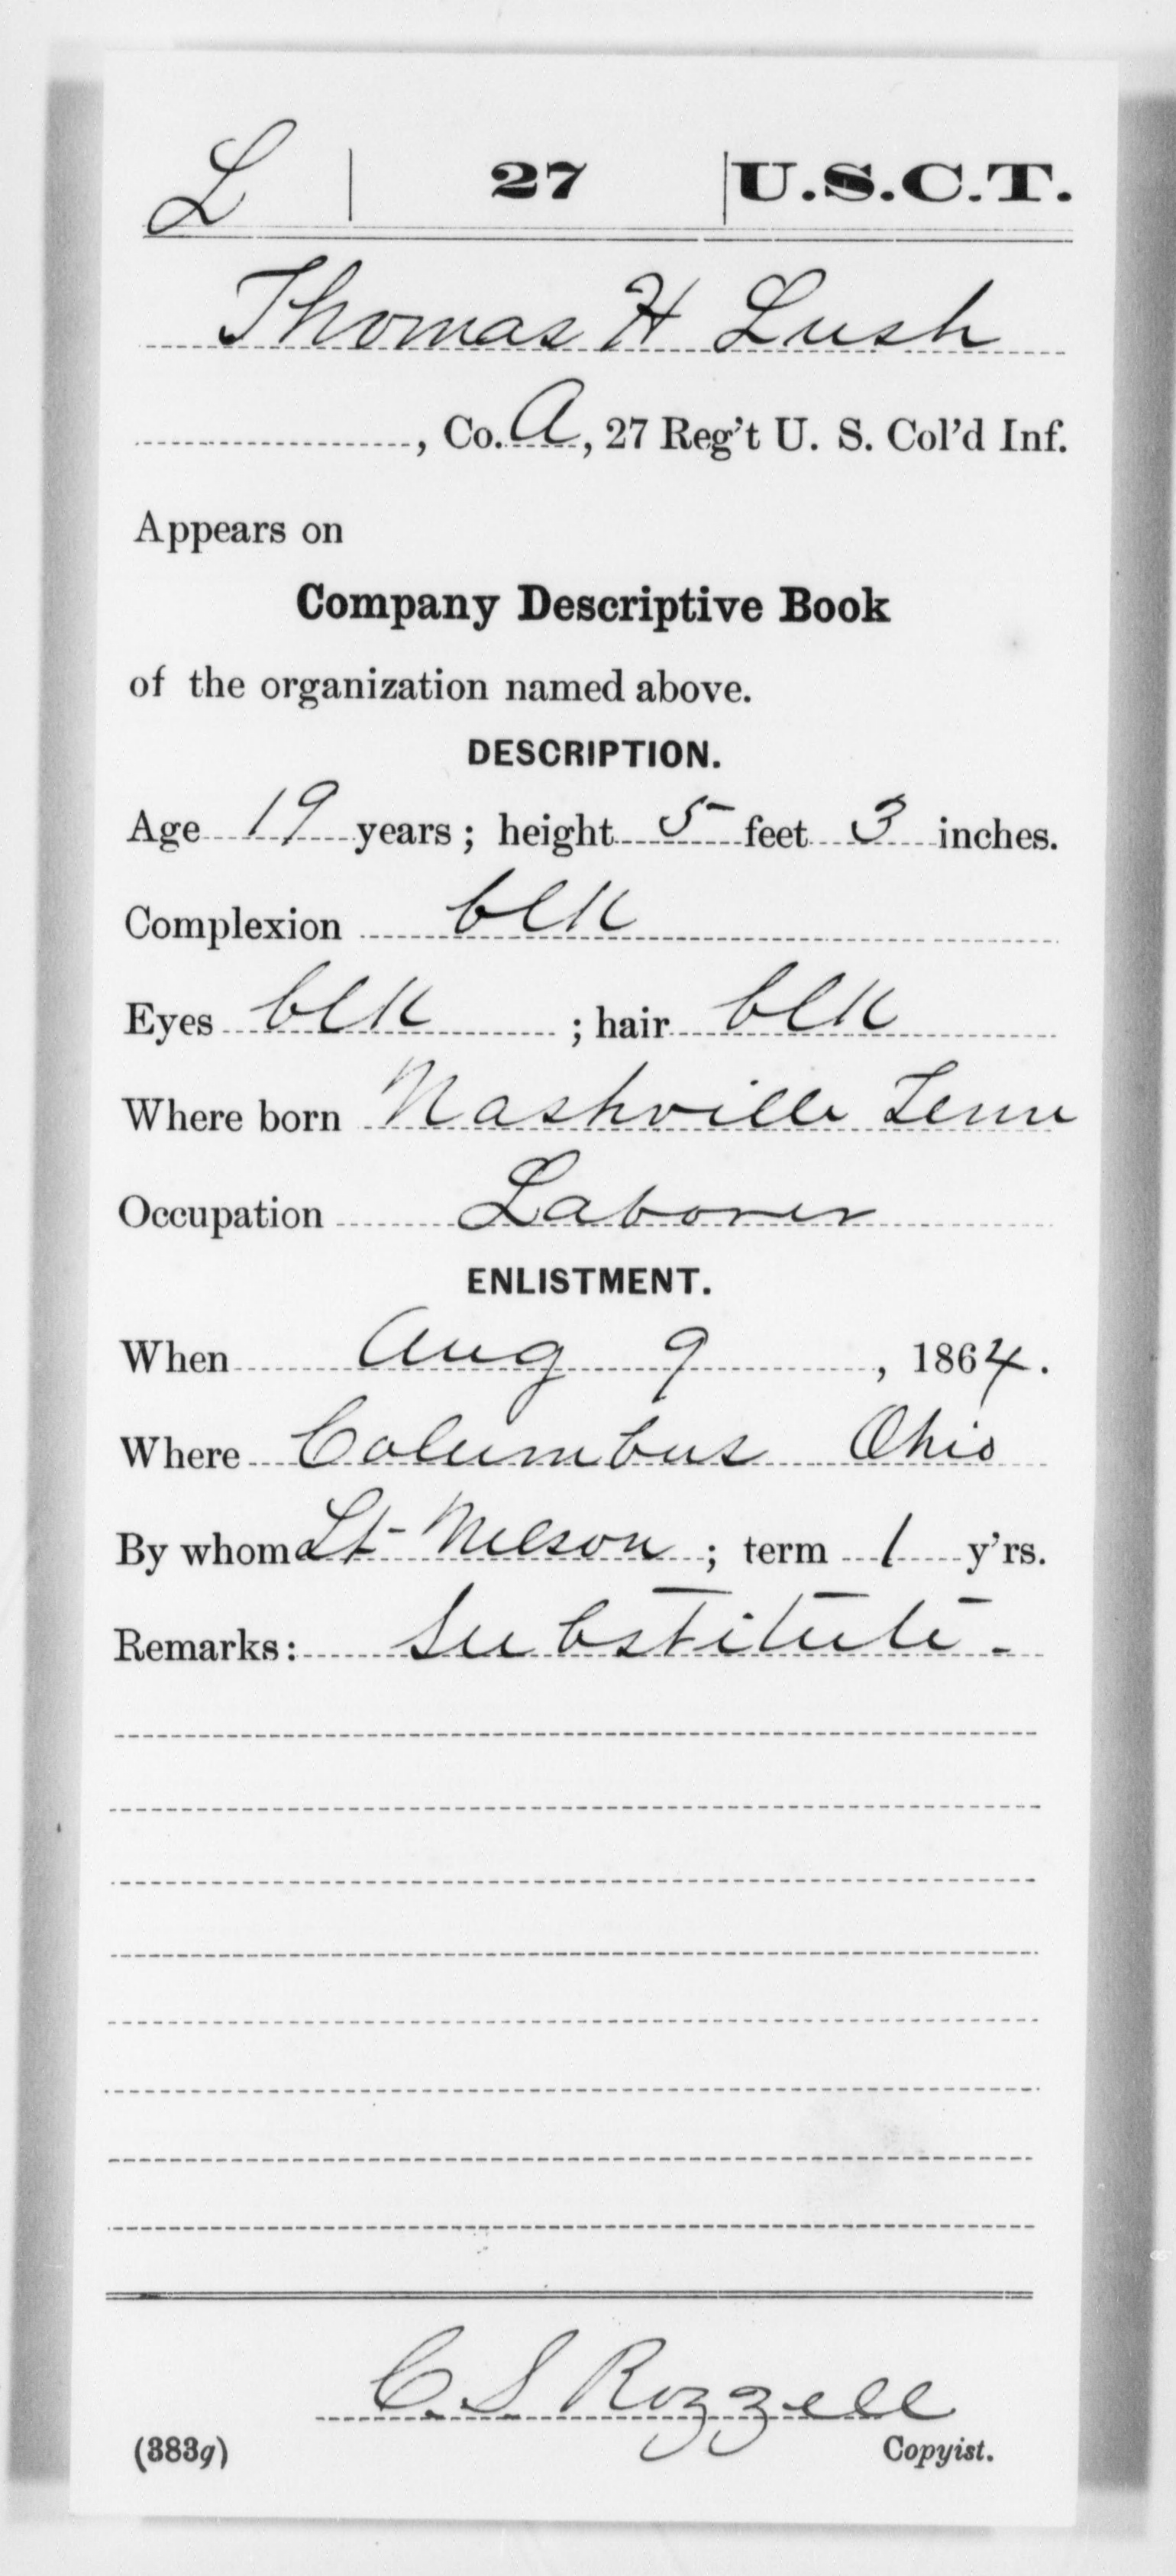 L 27 U.S.C.T.
Thomas H Lush
, Co. A, 27 Reg't U. S. Col'd Inf.
Appears on
Company Descriptive Book
of the organization named above.
DESCRIPTION.
Age 19 years; height 5 feet 3 inches.
Complexion blk
Eyes blk ; hair blk
Where born Nashville Tenn
Occupation Laborer
ENLISTMENT.
When Aug 9, 1864.
Where Columbus Ohio
By whom Lt Nelson ; term 1 y'rs.
Remarks: Substitute.
C.S. Rozzell
(383g) Copyist.